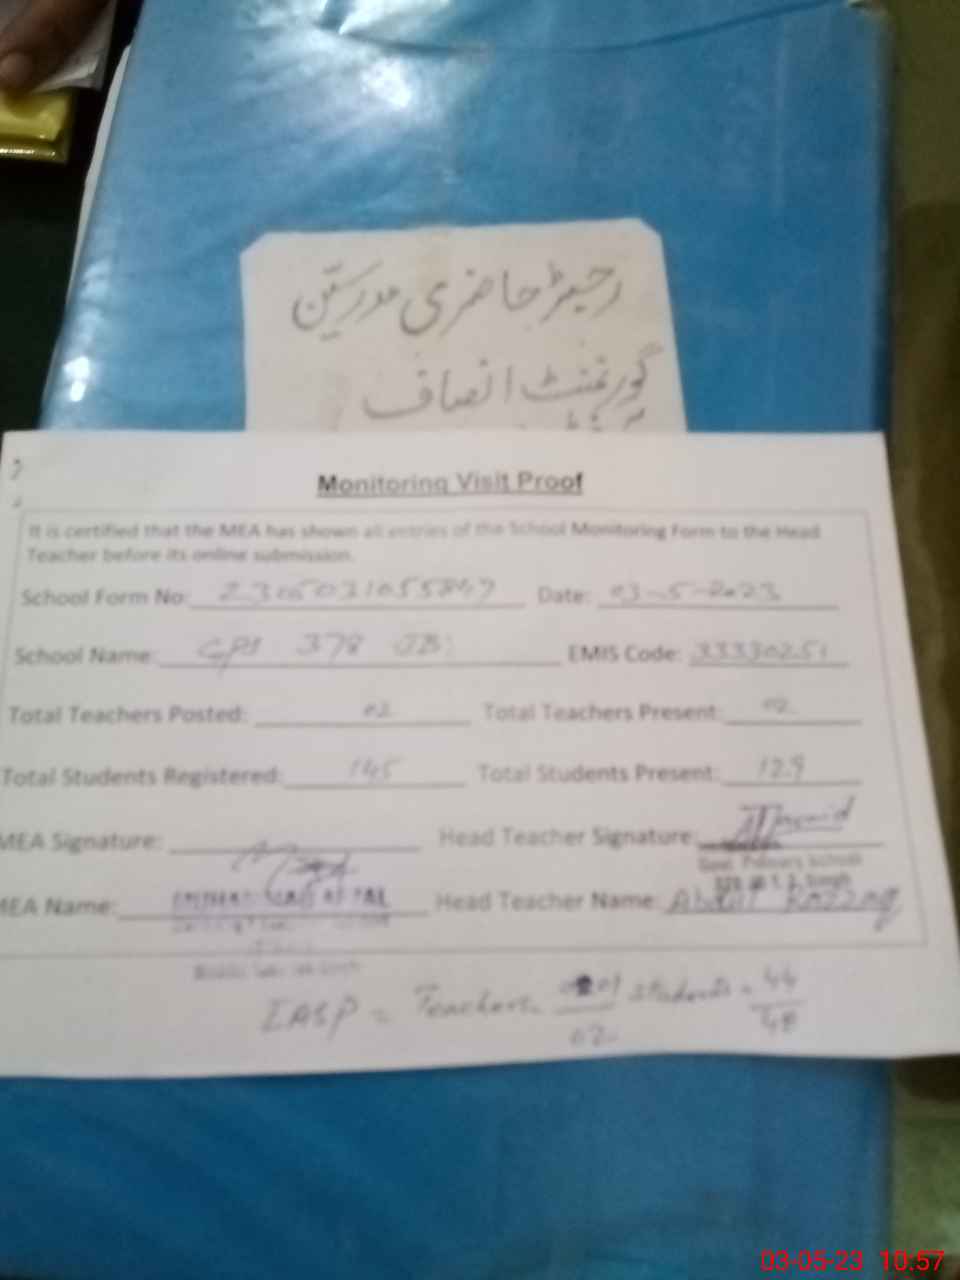 رجسٹر حاضری مدرسین
گورنمنٹ انصاف
Monitoring Visit Proof
It is certified that the MEA has shown all entries of the School Monitoring Form to the Head
Teacher before its online submission.
School Form No: 2305031055847 Date: 03-5-2023
School Name: GPS 378 JB EMIS Code: 33330251
Total Teachers Posted: 02 Total Teachers Present: 02
Total Students Registered: 145 Total Students Present: 129
MEA Signature: Head Teacher Signature:
Govt. Primary School
MEA Name: Head Teacher Name: Abdul
IASP = Teachers = 02 Students = 44/48
03-05-23 10:57